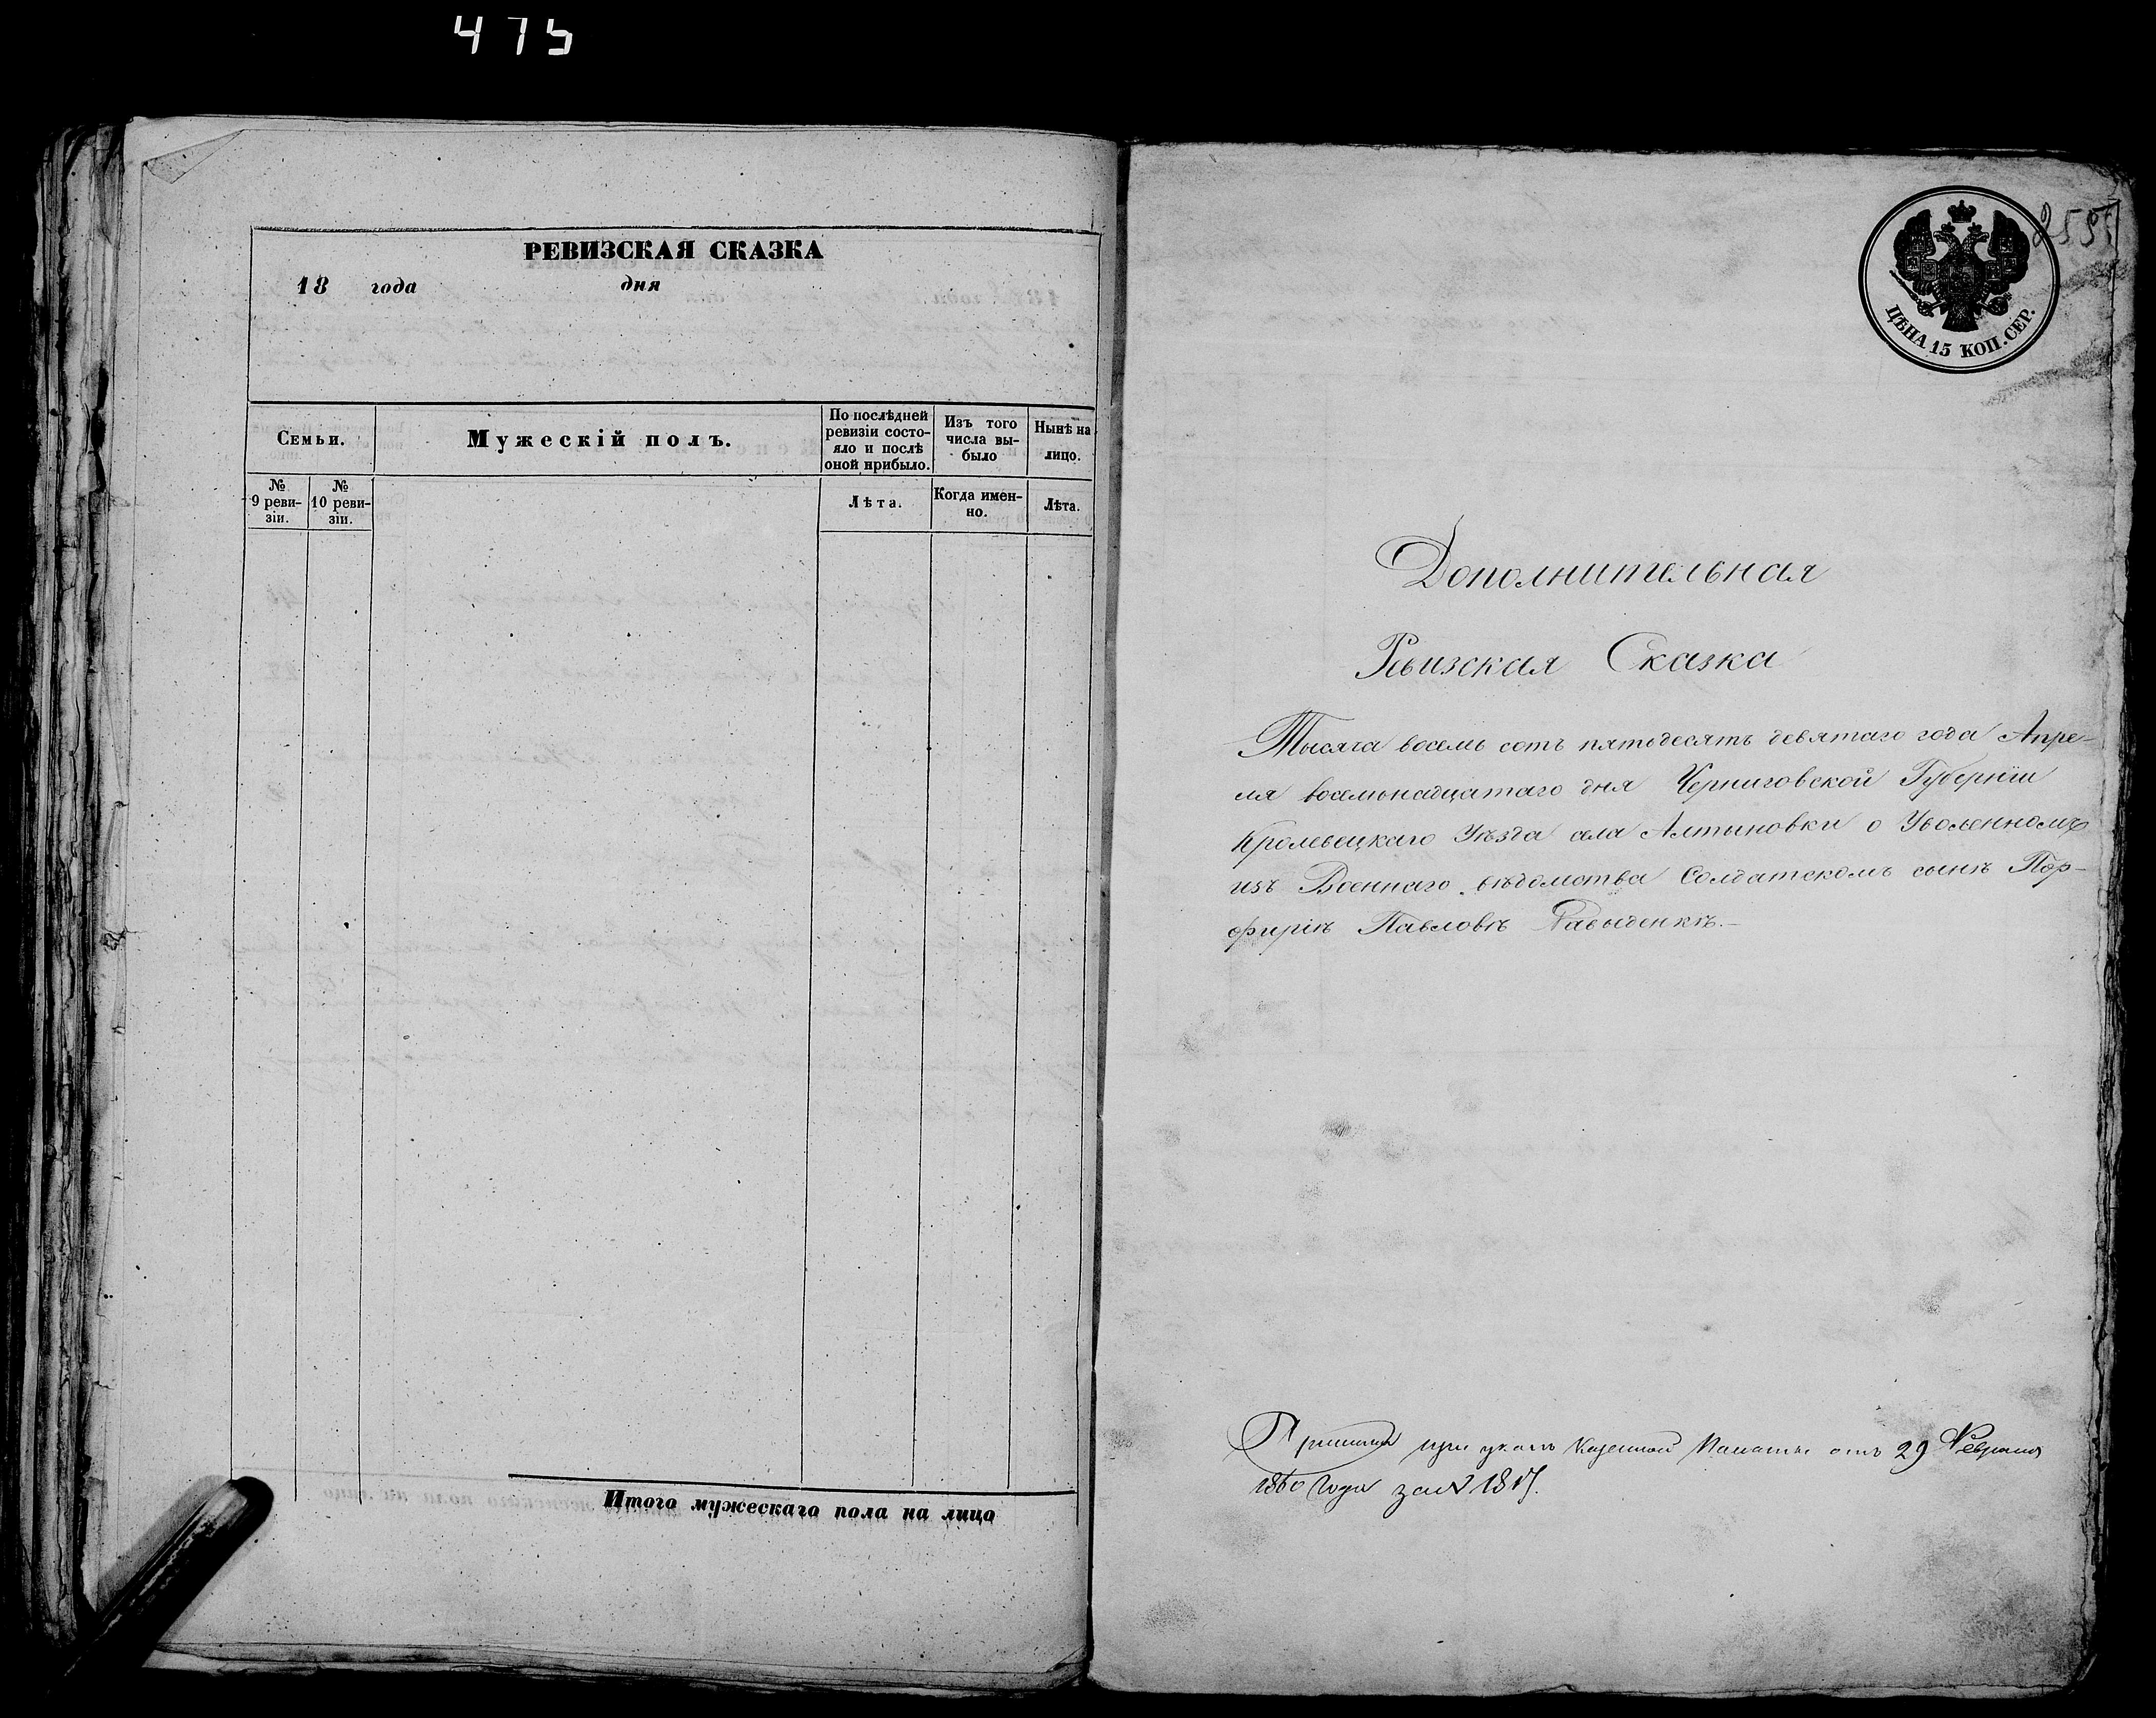 475
РЕВИЗСКАЯ СКАЗКА
18 года дня
Семьи.
Мужескій полъ.
По послѣдней
ревизіи состо-
яло и послѣ
оной прибыло.
Изъ того
числа вы-
было
Нынѣ на
лицо.
№
9 реви-
зіи.
№
10 реви-
зіи.
Лѣта.
Когда имен-
но.
Лѣта.
Итого мужескаго пола на лицо
ЦѢНА 15 КОП. СЕР.
Дополнительная
Ревизская Сказка
Тысяча восемь сотъ пятьдесятъ девятаго года Апре-
ля восемьнадцатаго дня Черниговской Губерніи
Кролевецкаго Уѣзда села Алтыновки о Уволенномъ
изъ Военнаго вѣдомства Солдатскомъ сынѣ Пор-
фиріѣ Павловѣ
при указѣ Казенной Палаты отъ 29 Февраля
1860 Года за №